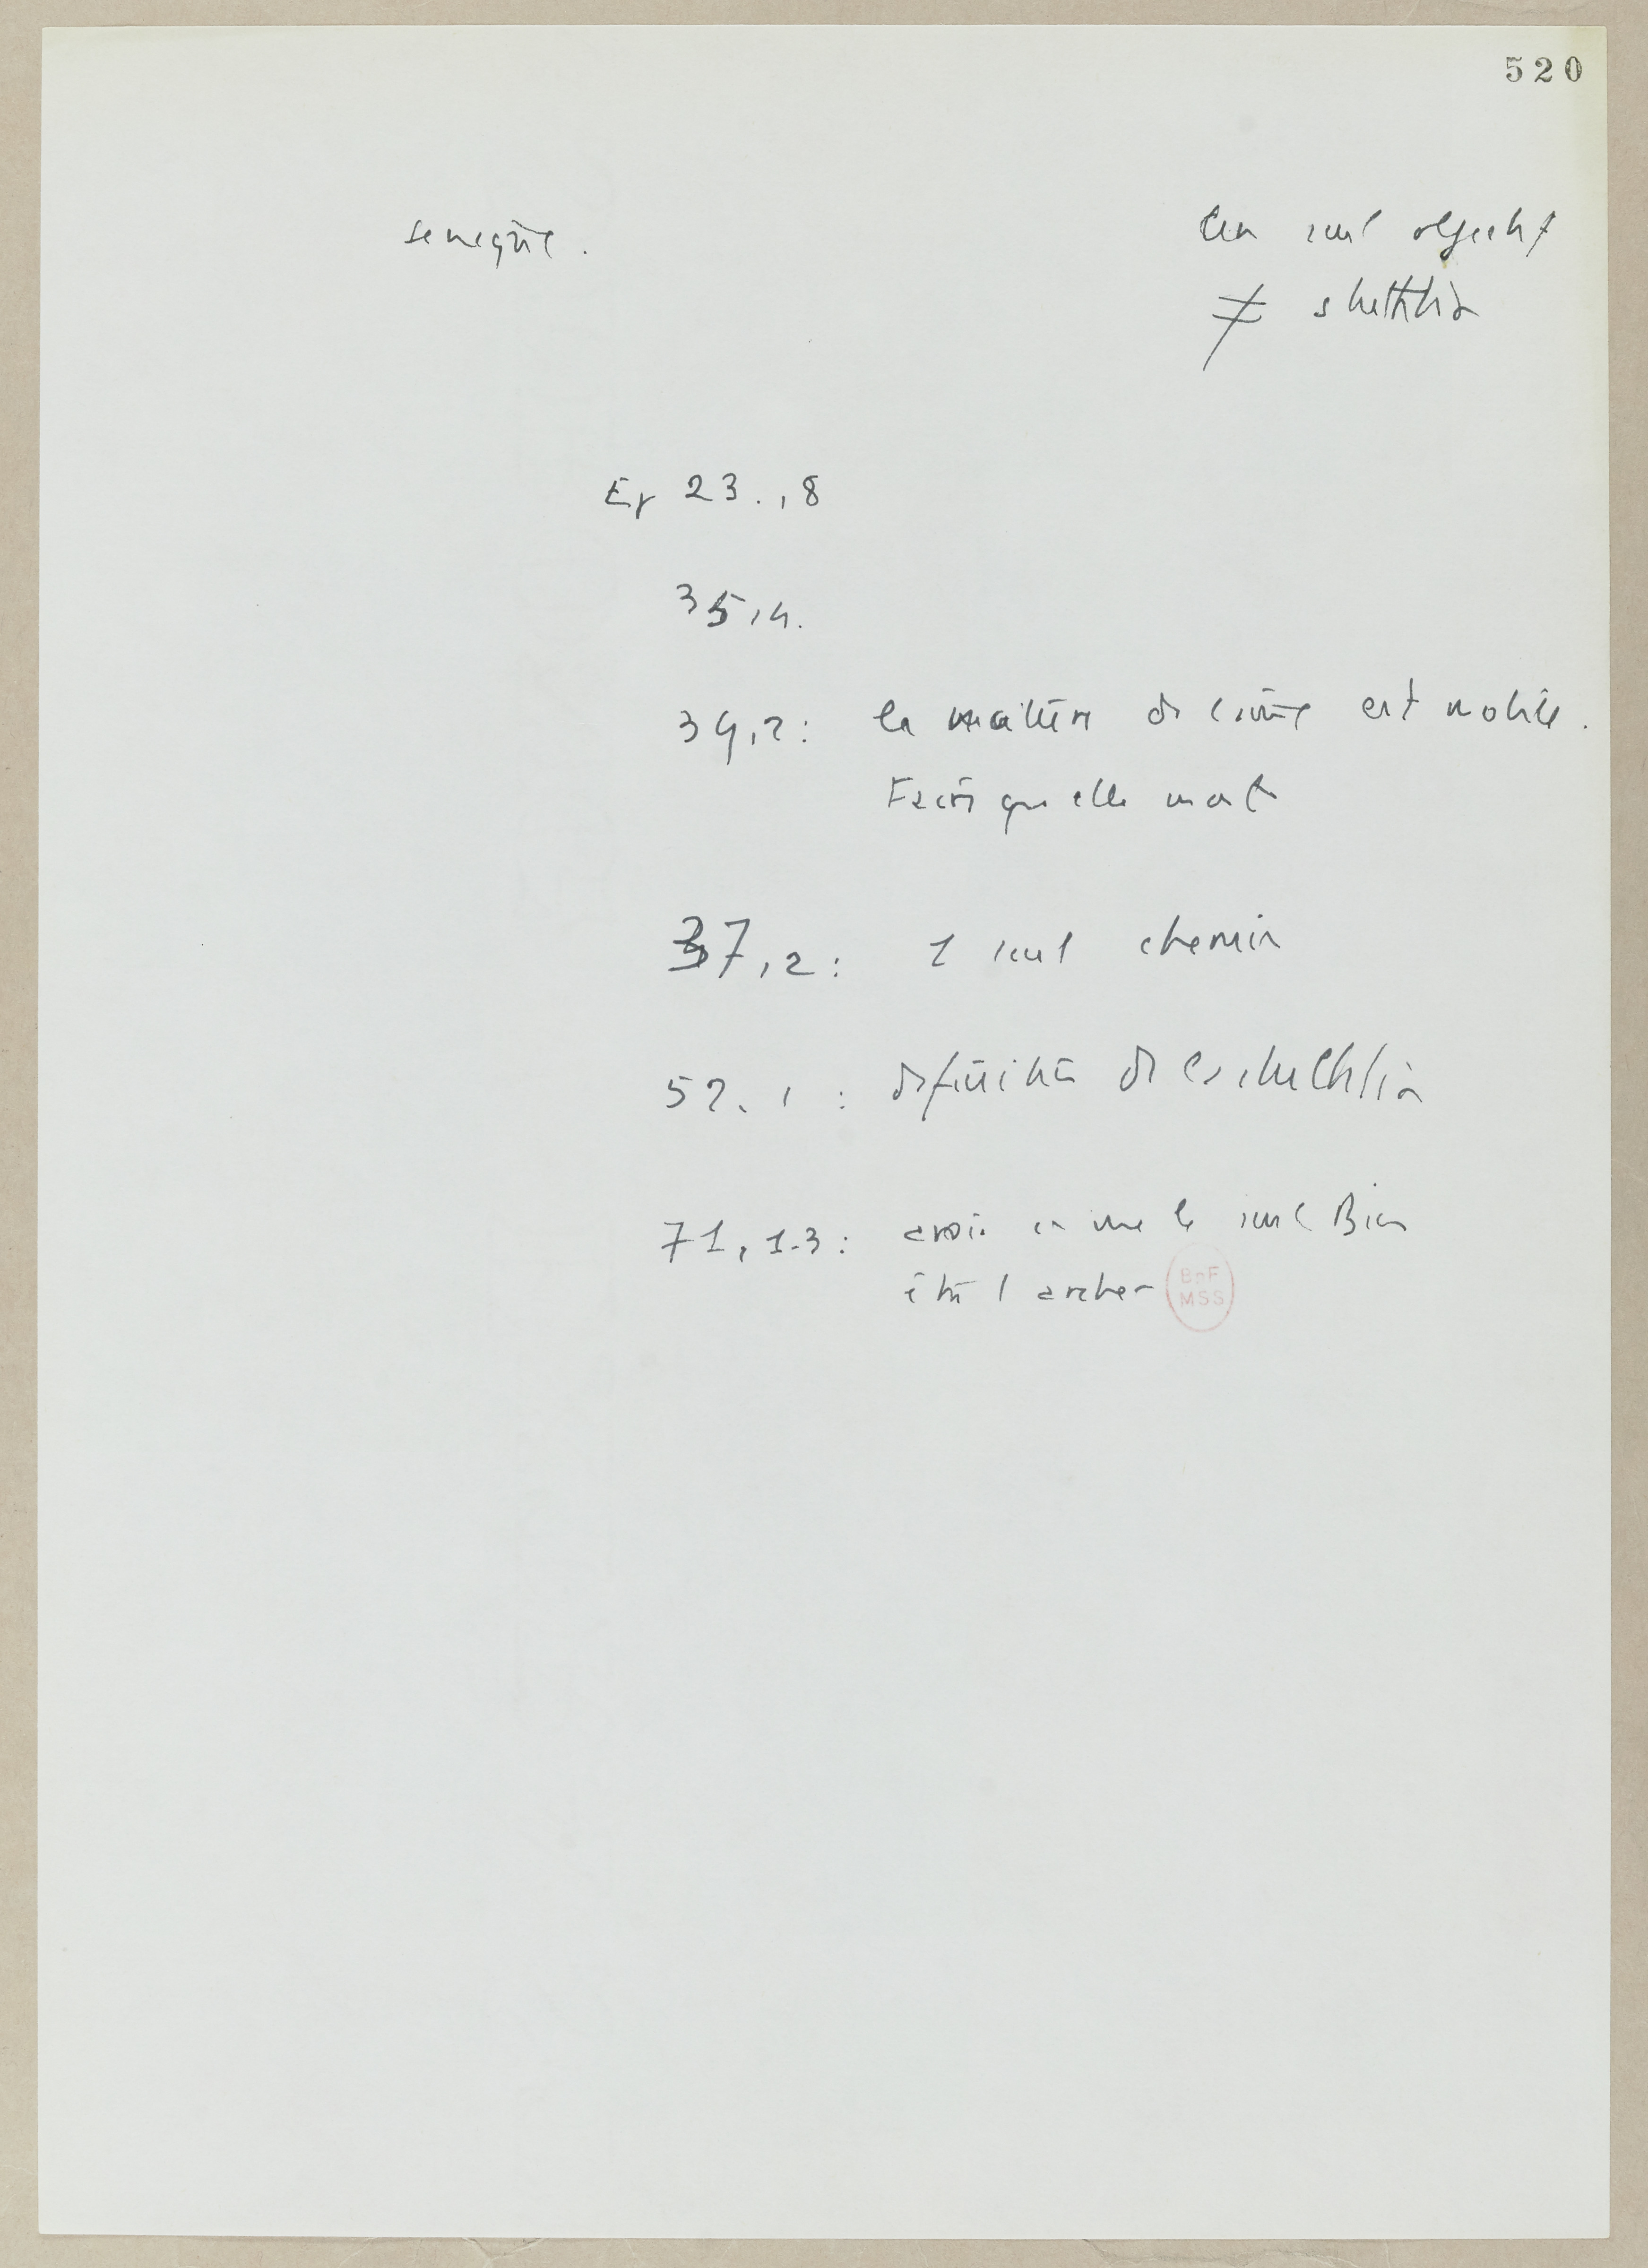 520
Seneque.
Un seul objectif
≠ stultitia
Ep 23., 8
35,4.
39,2: la matière de l'âme est mobile.
qu elle
37,2: 1 seul chemin
52. 1 : définition de la stultitia
71, 1-3: avoir en vue le seul Bien
être l archer
BnF
MSS